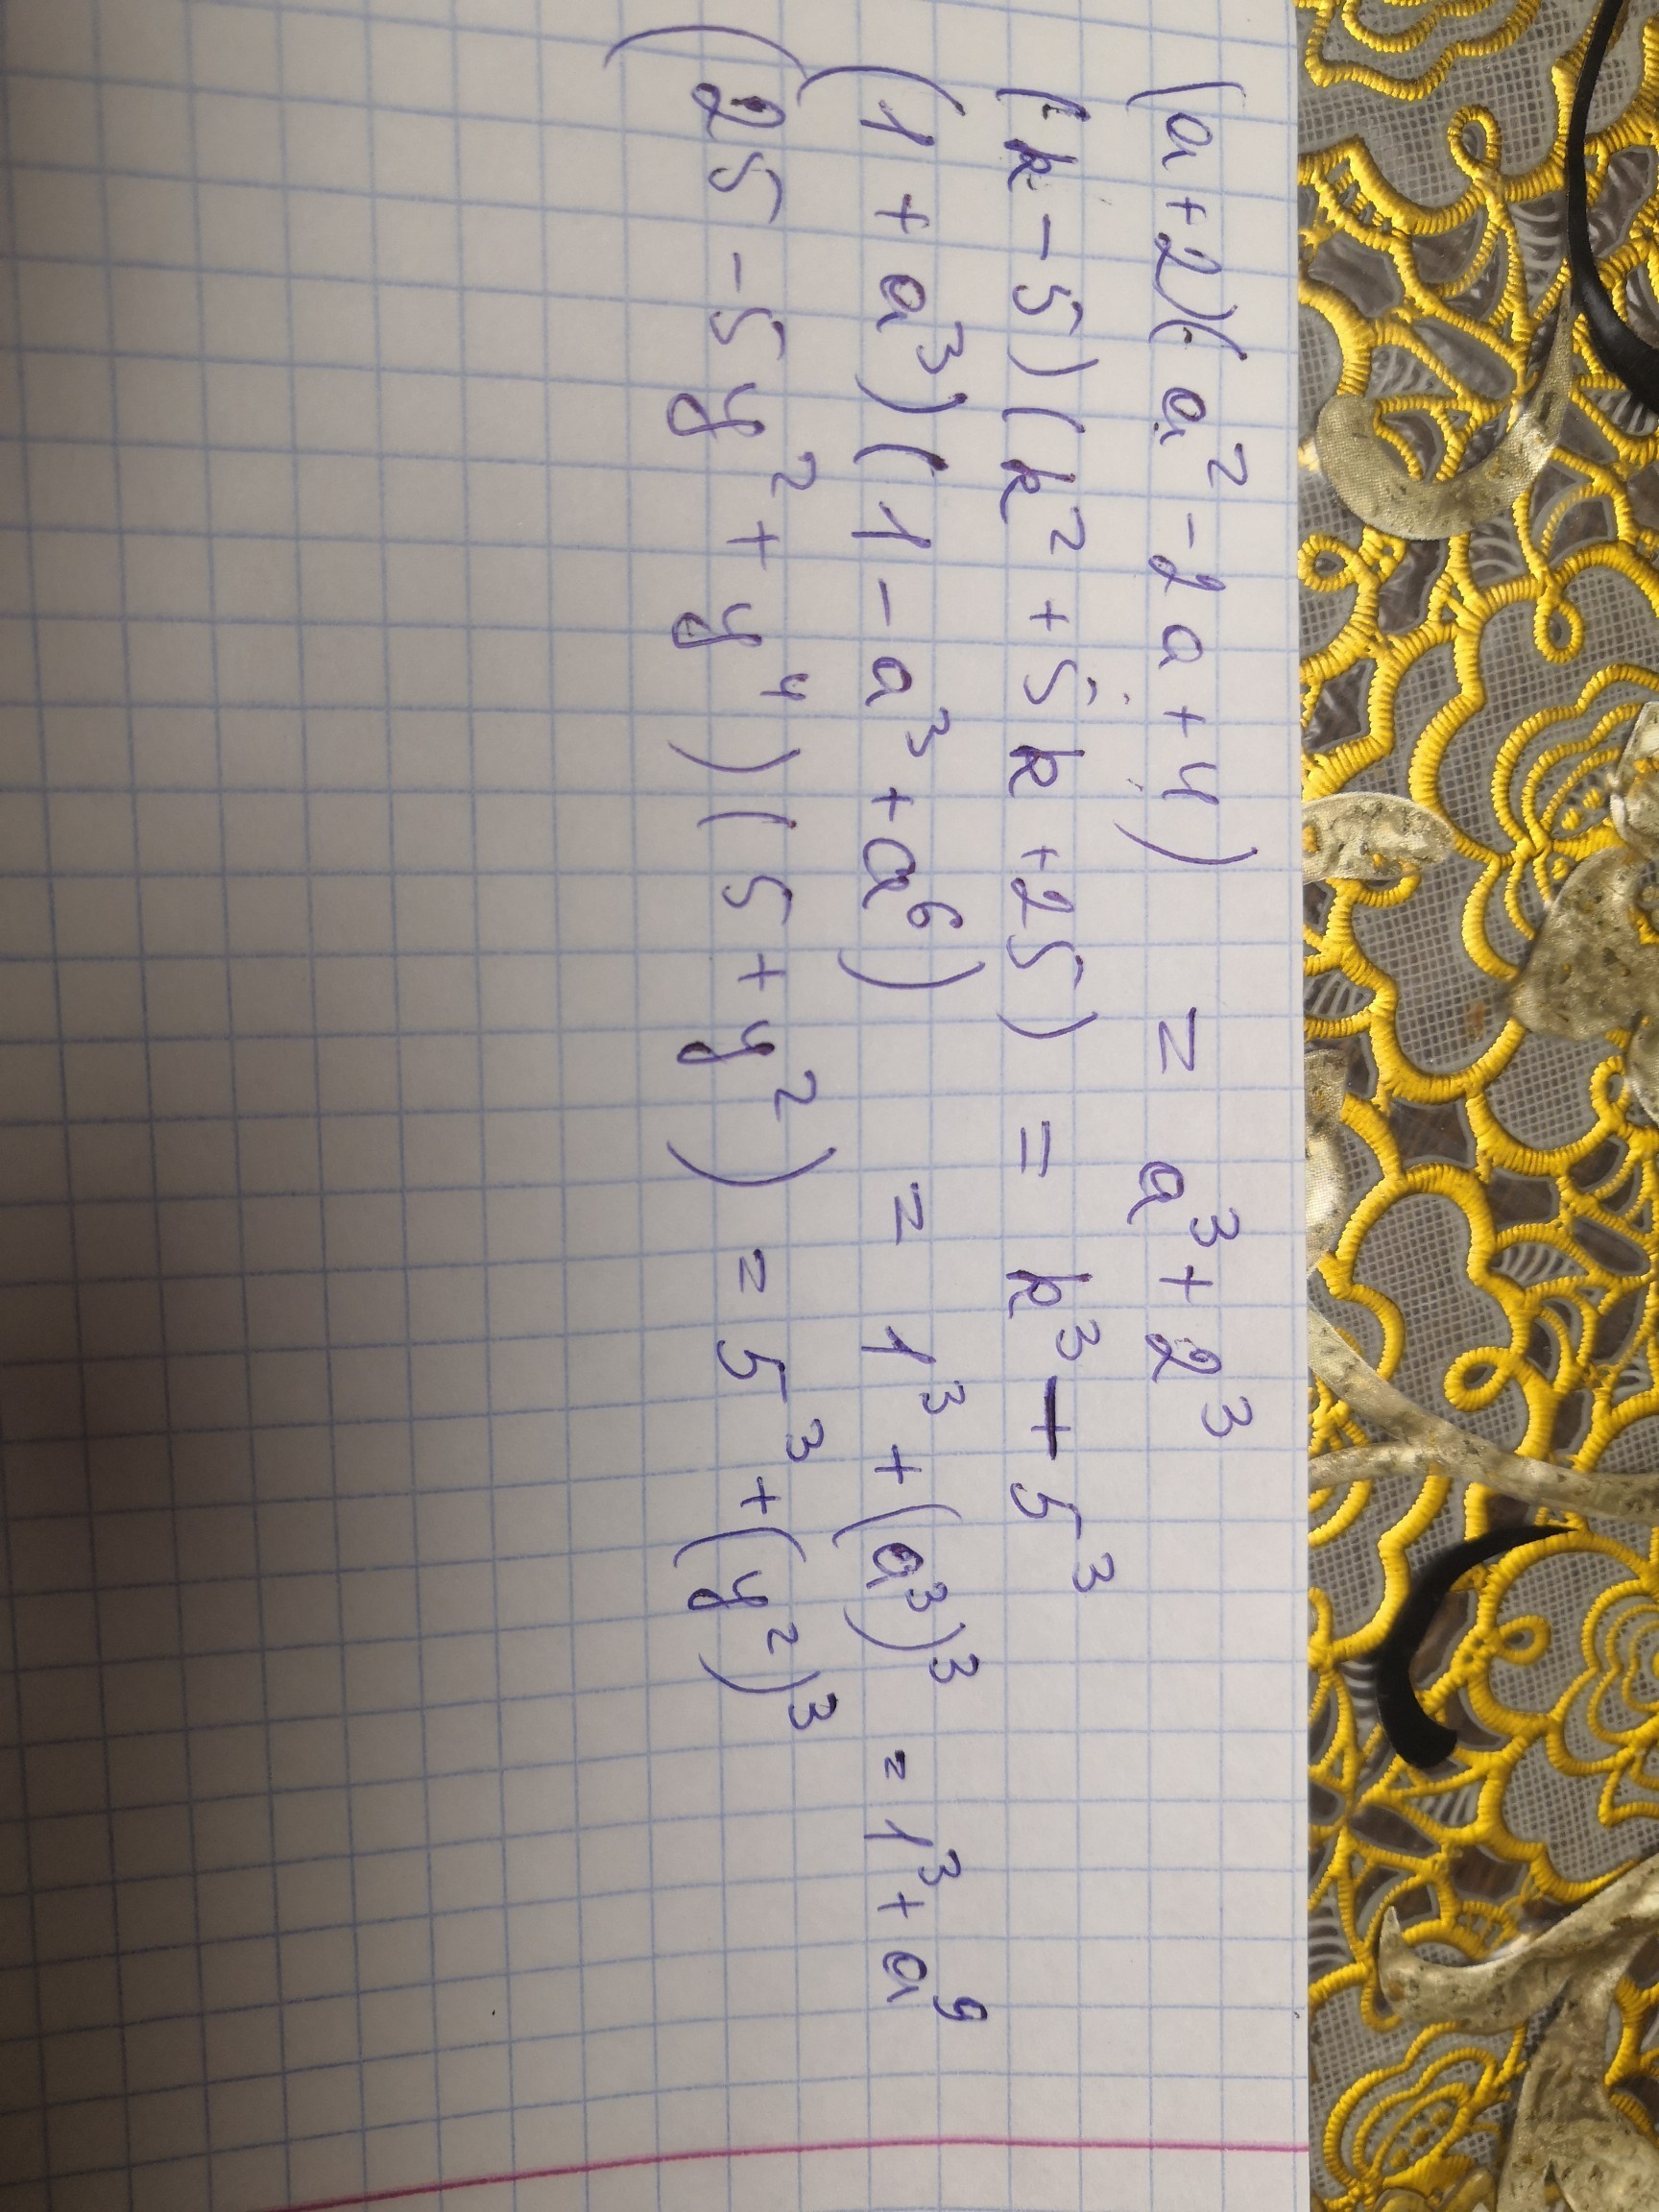 (a+2)(a²-2a+4) = a³+2³
(k-5)(k²+5k+25) = k³-5³
(1+a³)(1-a³+a⁶) = 1³+(a³)³ = 1³+a⁹
(25-5y²+y⁴)(5+y²) = 5³+(y²)³